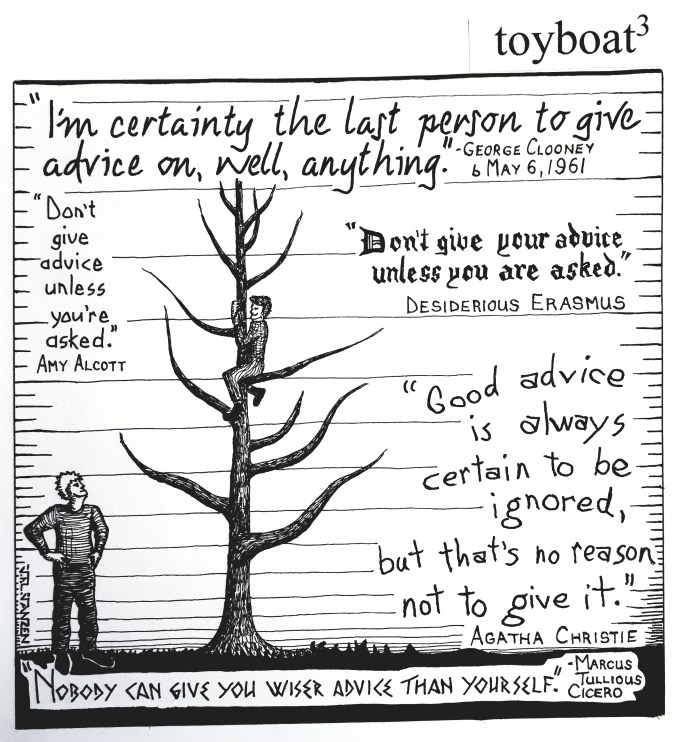 toyboat³
"I'm certainty the last person to give
advice on, well, anything."
-GEORGE CLOONEY
b MAY 6, 1961
"Don't
give
advice
unless
you're
asked."
AMY ALCOTT
"Don't give your advice
unless you are asked."
DESIDERIOUS ERASMUS
"Good advice
is always
certain to be
ignored,
but that's no reason
not to give it."
AGATHA CHRISTIE
"NOBODY CAN GIVE YOU WISER ADVICE THAN YOURSELF."
-MARCUS
TULLIOUS
CICERO